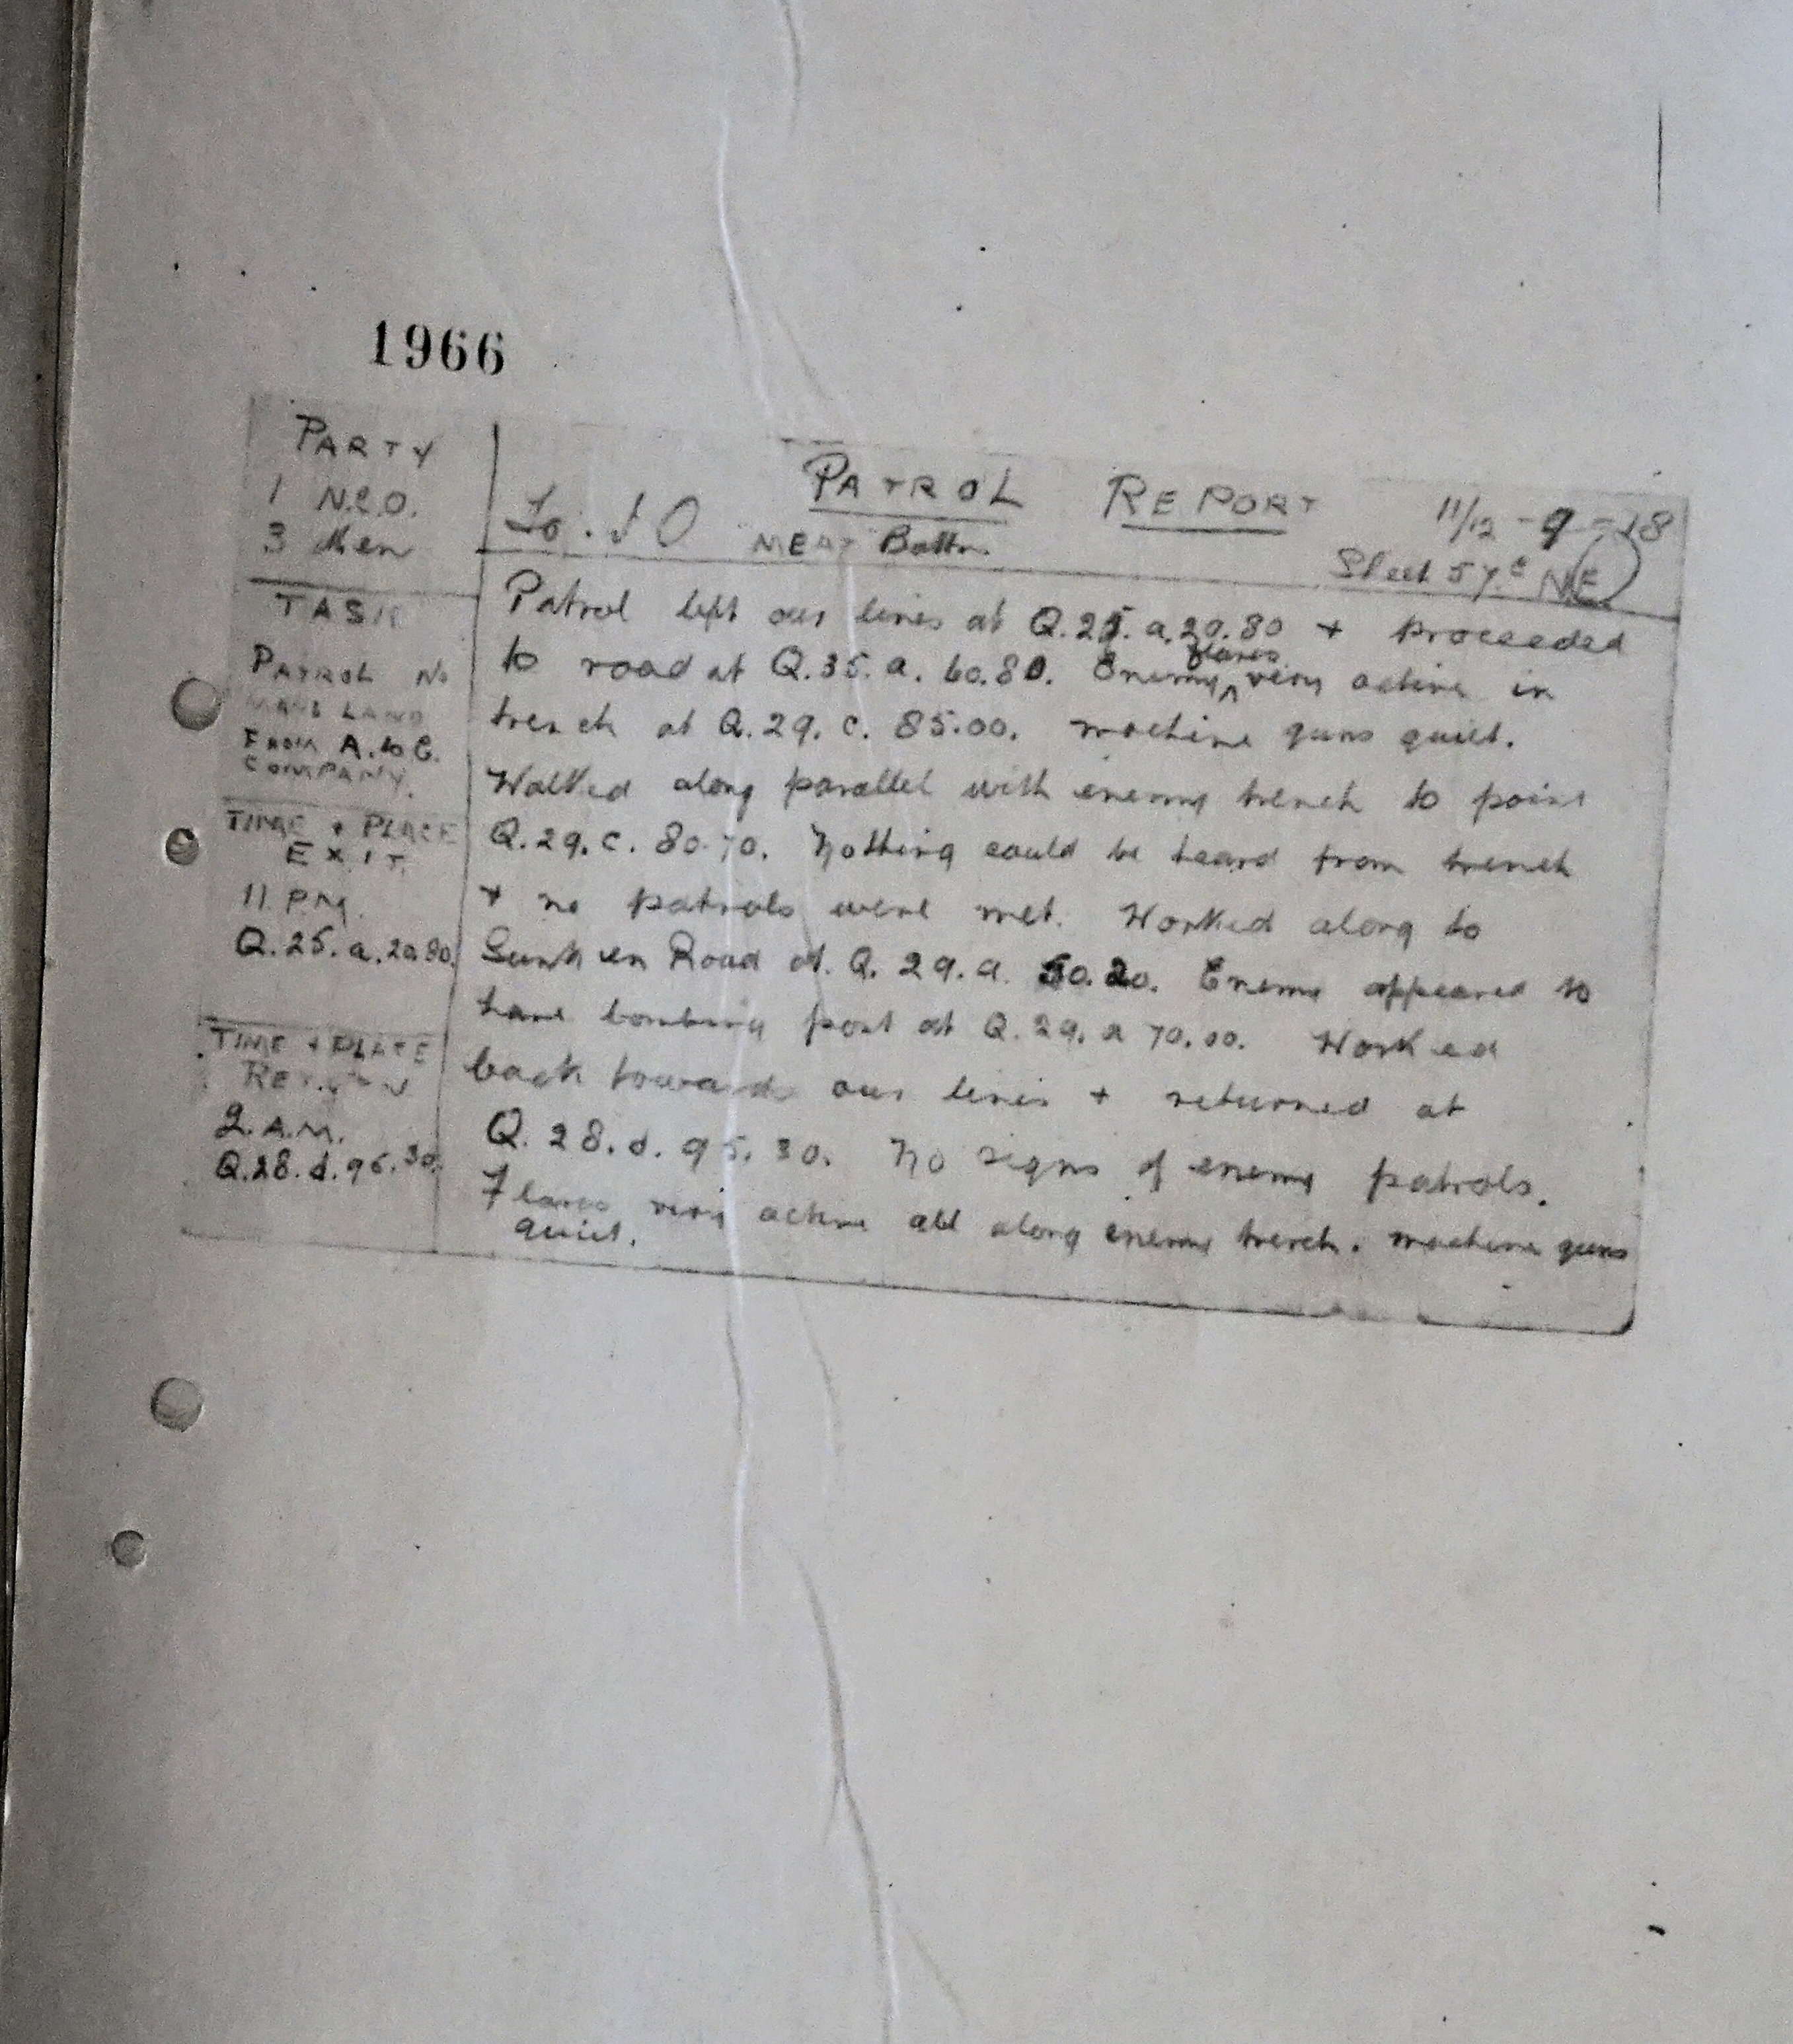 1966
PARTY
1 N.C.O.
3 Men
TASK
PATROL NO
MANS LAND
FROM A. to C.
COMPANY.
TIME + PLACE
EXIT.
11. P.M.
Q.25.a.20.80.
TIME + PLACE
RETURN
2. A.M.
Q.28.d.95.30.
PATROL REPORT 11/12 - 9 - 18
To. I O MEAT Battn.
Sheet 57c NE
Patrol left our lines at Q.25.a.20.80 + proceeded
to road at Q.35.a.60.80. Enemy flares very active in
trench at Q.29.c.85.00. machine guns quiet.
Walked along parallel with enemy trench to point
Q.29.c.80.70. Nothing could be heard from trench
+ no patrols were met. Worked along to
Sunken Road at Q.29.a.50.20. Enemy appeared to
have bombing post at Q.29.a 70.00. Worked
back towards our lines + returned at
Q.28.d.95.30. No signs of enemy patrols.
Flares very active all along enemy trench. machine guns
quiet.